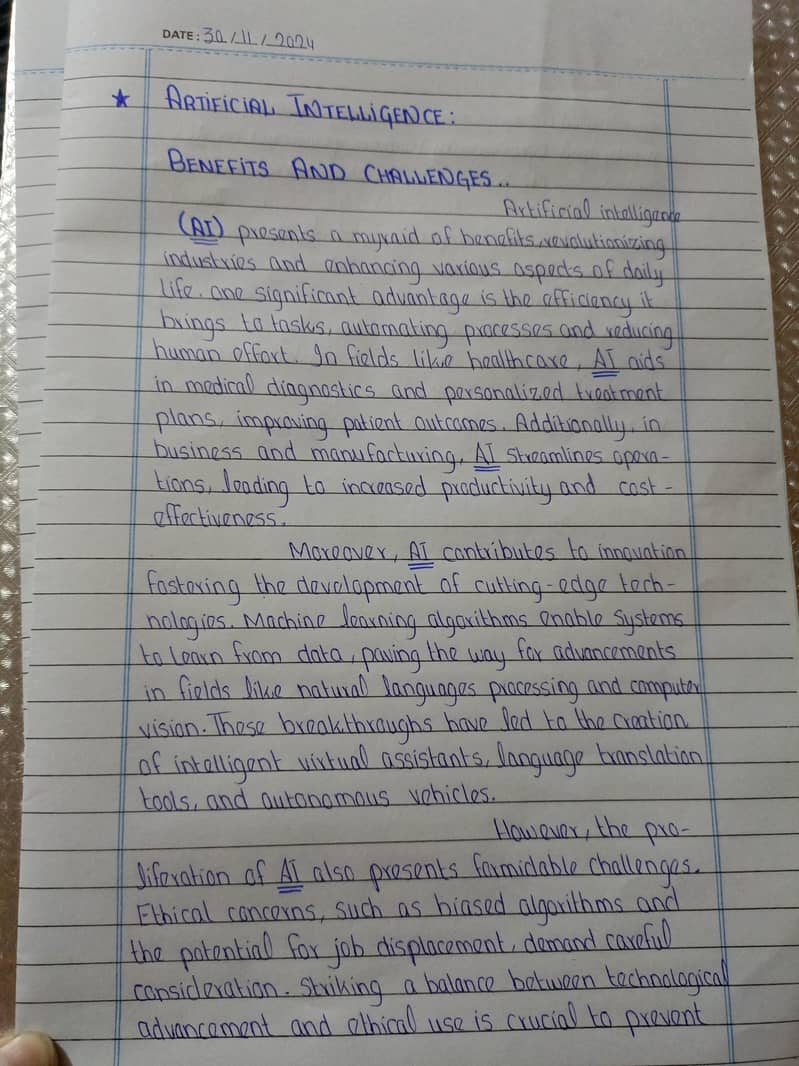 DATE: 30/11/2024
★ ARTIFICIAL INTELLIGENCE:
BENEFITS AND CHALLENGES..
Artificial intelligence
(AI) presents a myraid of benefits, revolutionizing
industries and enhancing various aspects of daily
life. one significant advantage is the efficiency it
brings to tasks, automating processes and reducing
human effort. In fields like healthcare, AI aids
in medical diagnostics and personalized treatment
plans, improving patient outcomes. Additionally, in
business and manufacturing, AI streamlines opera-
tions, leading to increased productivity and cost-
effectiveness.
Moreover, AI contributes to innovation
fostering the development of cutting-edge tech-
nologies. Machine learning algorithms enable systems
to learn from data, paving the way for advancements
in fields like natural languages processing and computer
vision. These breakthroughs have led to the creation
of intelligent virtual assistants, language translation
tools, and autonomous vehicles.
However, the pro-
liferation of AI also presents formidable challenges.
Ethical concerns, such as biased algorithms and
the potential for job displacement, demand careful
consideration. Striking a balance between technological
advancement and ethical use is crucial to prevent